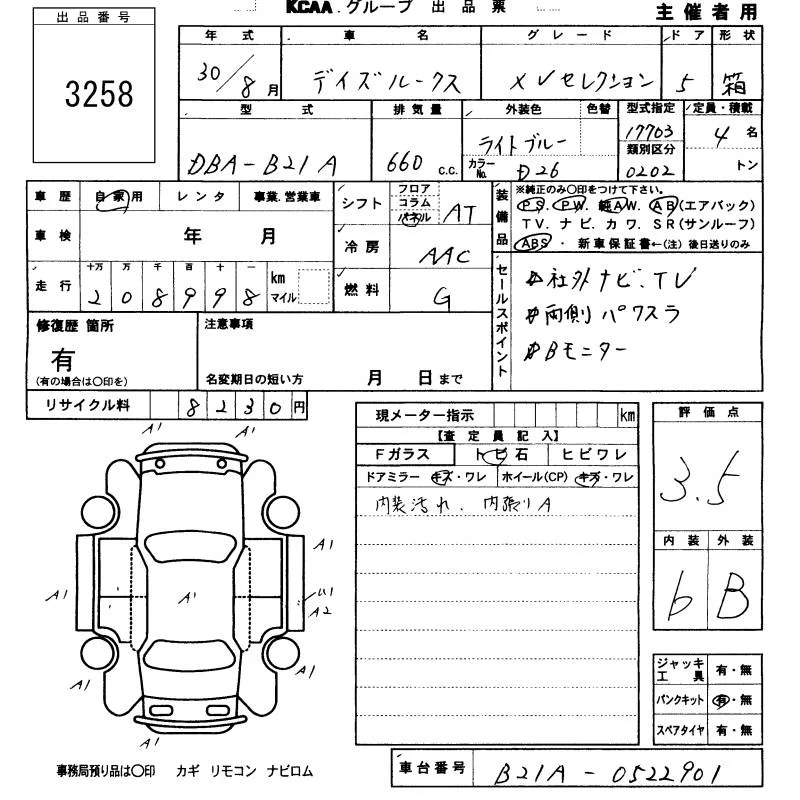 KCAA.グループ 出品票
主催者用
出品番号
3258
年式 車名 グレード ドア 形状
30/8月 デイズルークス XVセレクション 5 箱
型式 排気量 外装色 色替 型式指定 定員・積載
DBA-B21A 660 c.c. ライトブルー 17703 4名
類別区分
カラーNo. D26 0202 トン
車歴 自家用 レンタ 事業.営業車
シフト フロア コラム パネル AT
装備品
※純正のみ〇印をつけて下さい。
PS. PW. 純AW. AB(エアバック)
TV. ナビ. カワ. SR(サンルーフ)
ABS・新車保証書←(注)後日送りのみ
車検 年 月
冷房 AAC
走行 十万 万 千 百 十 一
208998 km マイル
燃料 G
セールスポイント
社外ナビ.TV
両側パワスラ
Bモニター
修復歴 箇所
有
(有の場合は〇印を)
注意事項
名変期日の短い方 月 日まで
リサイクル料 8230円
現メーター指示 km
【査定員記入】
Fガラス トビ石 ヒビワレ
ドアミラー キズ・ワレ ホイール(CP) キズ・ワレ
内装汚れ. 内張りA
評価点
3.5
内装 外装
b B
A1 A1
A1
A1 A1 U1
A2
A1 A1
A1
ジャッキ工具 有・無
パンクキット 有・無
スペアタイヤ 有・無
事務局預り品は〇印 カギ リモコン ナビロム
車台番号 B21A-0522901